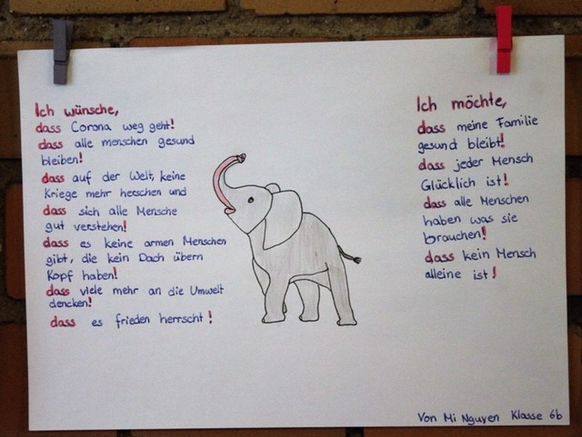 Ich wünsche,
dass Corona weg geht!
dass alle menschen gesund
bleiben!
dass auf der Welt, keine
Kriege mehr herschen und
dass sich alle Mensche
gut verstehen!
dass es keine armen Menschen
gibt, die kein Dach übern
Kopf haben!
dass viele mehr an die Umwelt
dencken!
dass es frieden herrscht!
Ich möchte,
dass meine Familie
gesund bleibt!
dass jeder Mensch
Glücklich ist!
dass alle Menschen
haben was sie
brauchen!
dass kein Mensch
alleine ist!
Von Mi Nguyen Klasse 6b